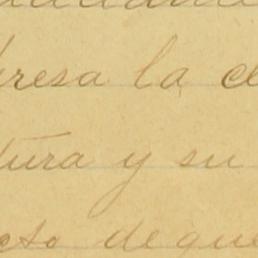 resa la c
tura y su
cto de que